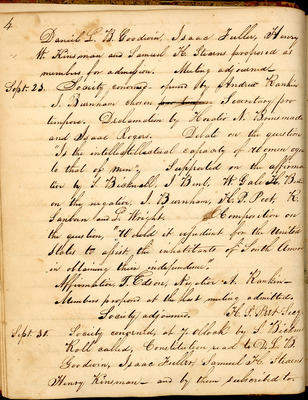 4
Daniel L. B. Goodwin, Isaac Fuller, Henry
W. Kinsman and Samuel H. Stearns proposed as
members for admission. Meeting adjourned
Sept. 23. Society convened. opened by Andrew Rankin
J. Burnham chosen Secretary pro-
tempore. Declamation by Hosea
and Isaac Rogers. Debate on the question
"Is the intellectual capacity of women equal
to that of men?" Supported on the affirma-
tive by J. Bicknall, J. Burt, W. Gale H.
on the negative, J. Burnham, H. P. Peet, K.
Sanborn and Wright. Composition on
the question, "Would it be expedient for the United
States to assist the inhabitants of South America
in obtaining their independence".
Affirmative J. Edson, Negative A. Rankin
Members proposed at the last meeting admitted.
Society adjourned. H. P. Peet Secy.
Sept. 31. Society convened, at 7 oclock by
Roll called, Constitution read to D. L. B.
Goodwin, Isaac Fuller, Samuel H. Stearns
Henry Kinsman and by them subscribed to.